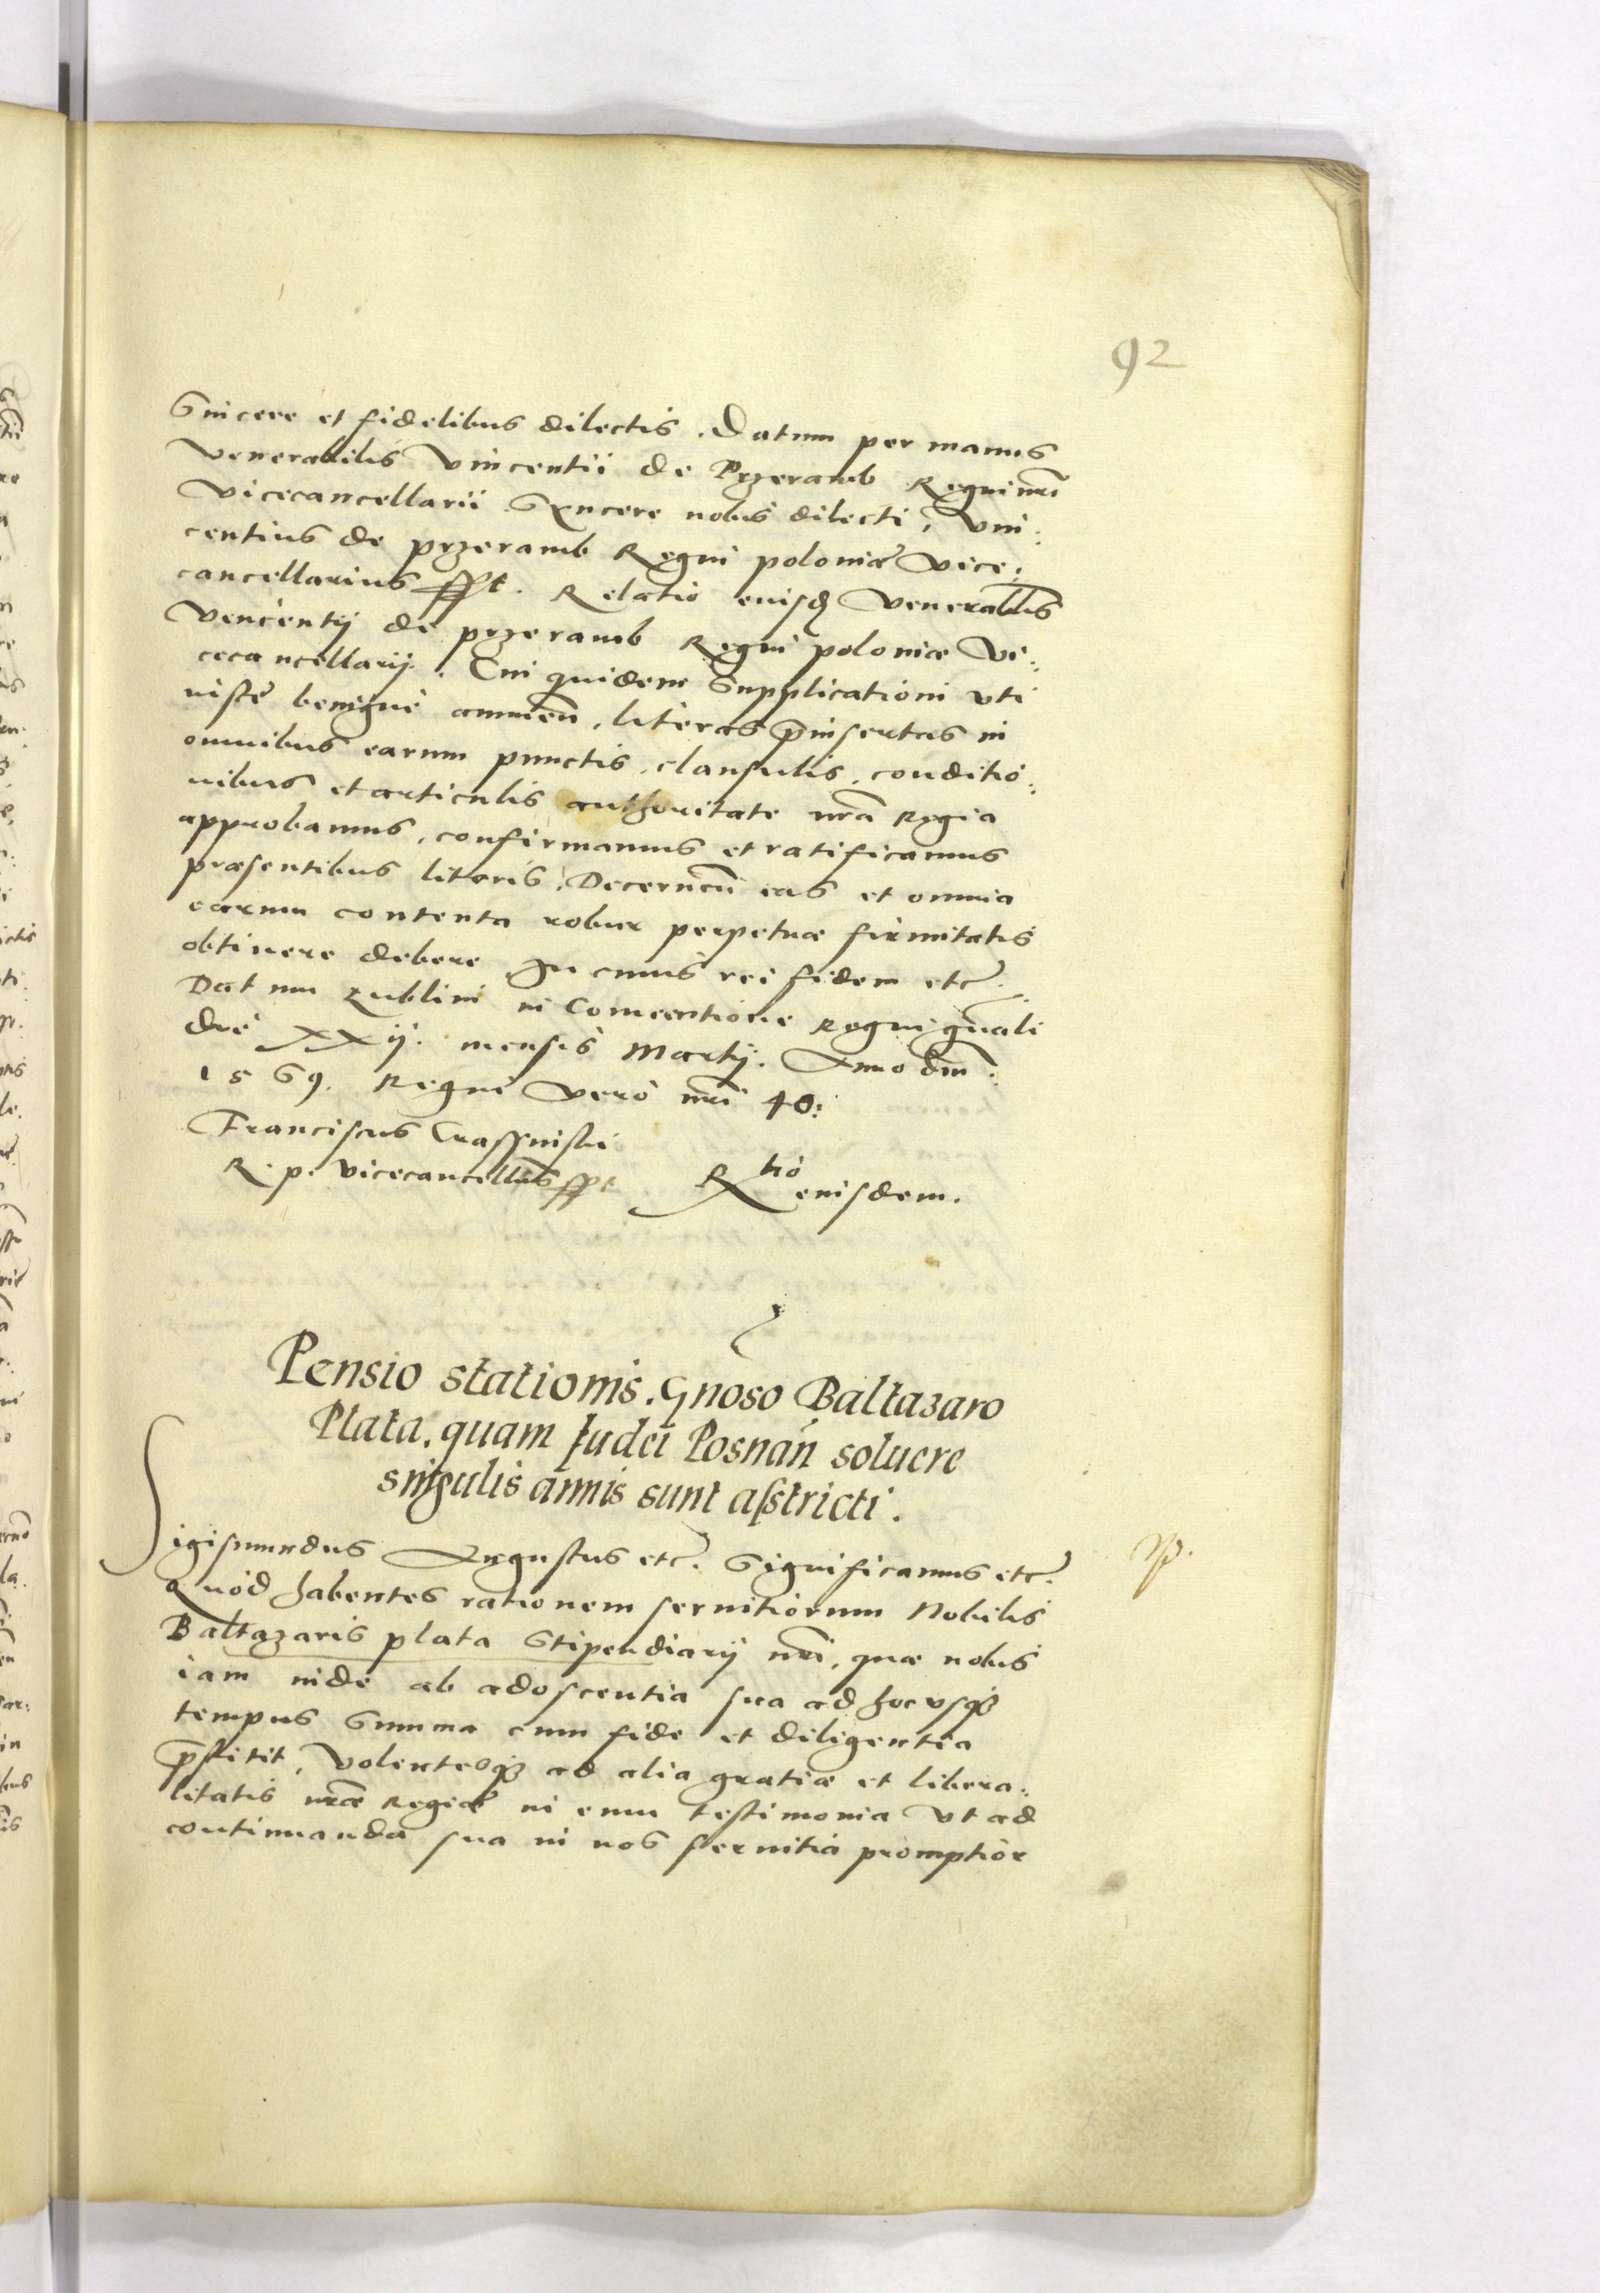 92
Sincere et fidelibus dilectis. Datum per manus
Venerabilis Vincentii de Przeramb Regni nri
Vicecancellarii Syncere nobis dilecti, Vin:
centius de przeramb Regni poloniæ Vice:
cancellarius sspt. Relatio eiusdem Venerabilis
Vencentij de przeramb Regni poloniæ Vi:
cecancellarij. Cui quidem Supplicationi uti
iuste benigne annuen, literas præinsertas in
omnibus earum punctis, clausulis, conditio:
nibus et articulis authoritate nra Regia
approbamus, confirmamus et ratificamus
præsentibus literis, Decernen eas et omnia
earum contenta robur perpetuæ firmitatis
obtinere debere In cuius rei fidem etc.
Datum Lublini in Conuentione Regni gnali
die XXij. mensis Martij. Anno dni:
1569. Regni vero nri 40:
Franciscus Crassinski
R. p. Vicecancellarius sspt
Rtio eiusdem.
Pensio stationis. Gnoso Baltazaro
Plata. quam Iudei Posnan soluere
singulis annis sunt astricti.
Sigismundus Augustus etc. Significamus etc.
Quod habentes rationem seruitiorum Nobilis
Baltazaris plata Stipendiarij nri, quæ nobis
iam inde ab adoscentia sua ad hoc usq
tempus Summa cum fide et diligentia
præstitit, Volentesq ad alia gratiæ et libera:
litatis nræ Regiæ in eum testimonia Vt ad
continuanda sua in nos seruitia promptior